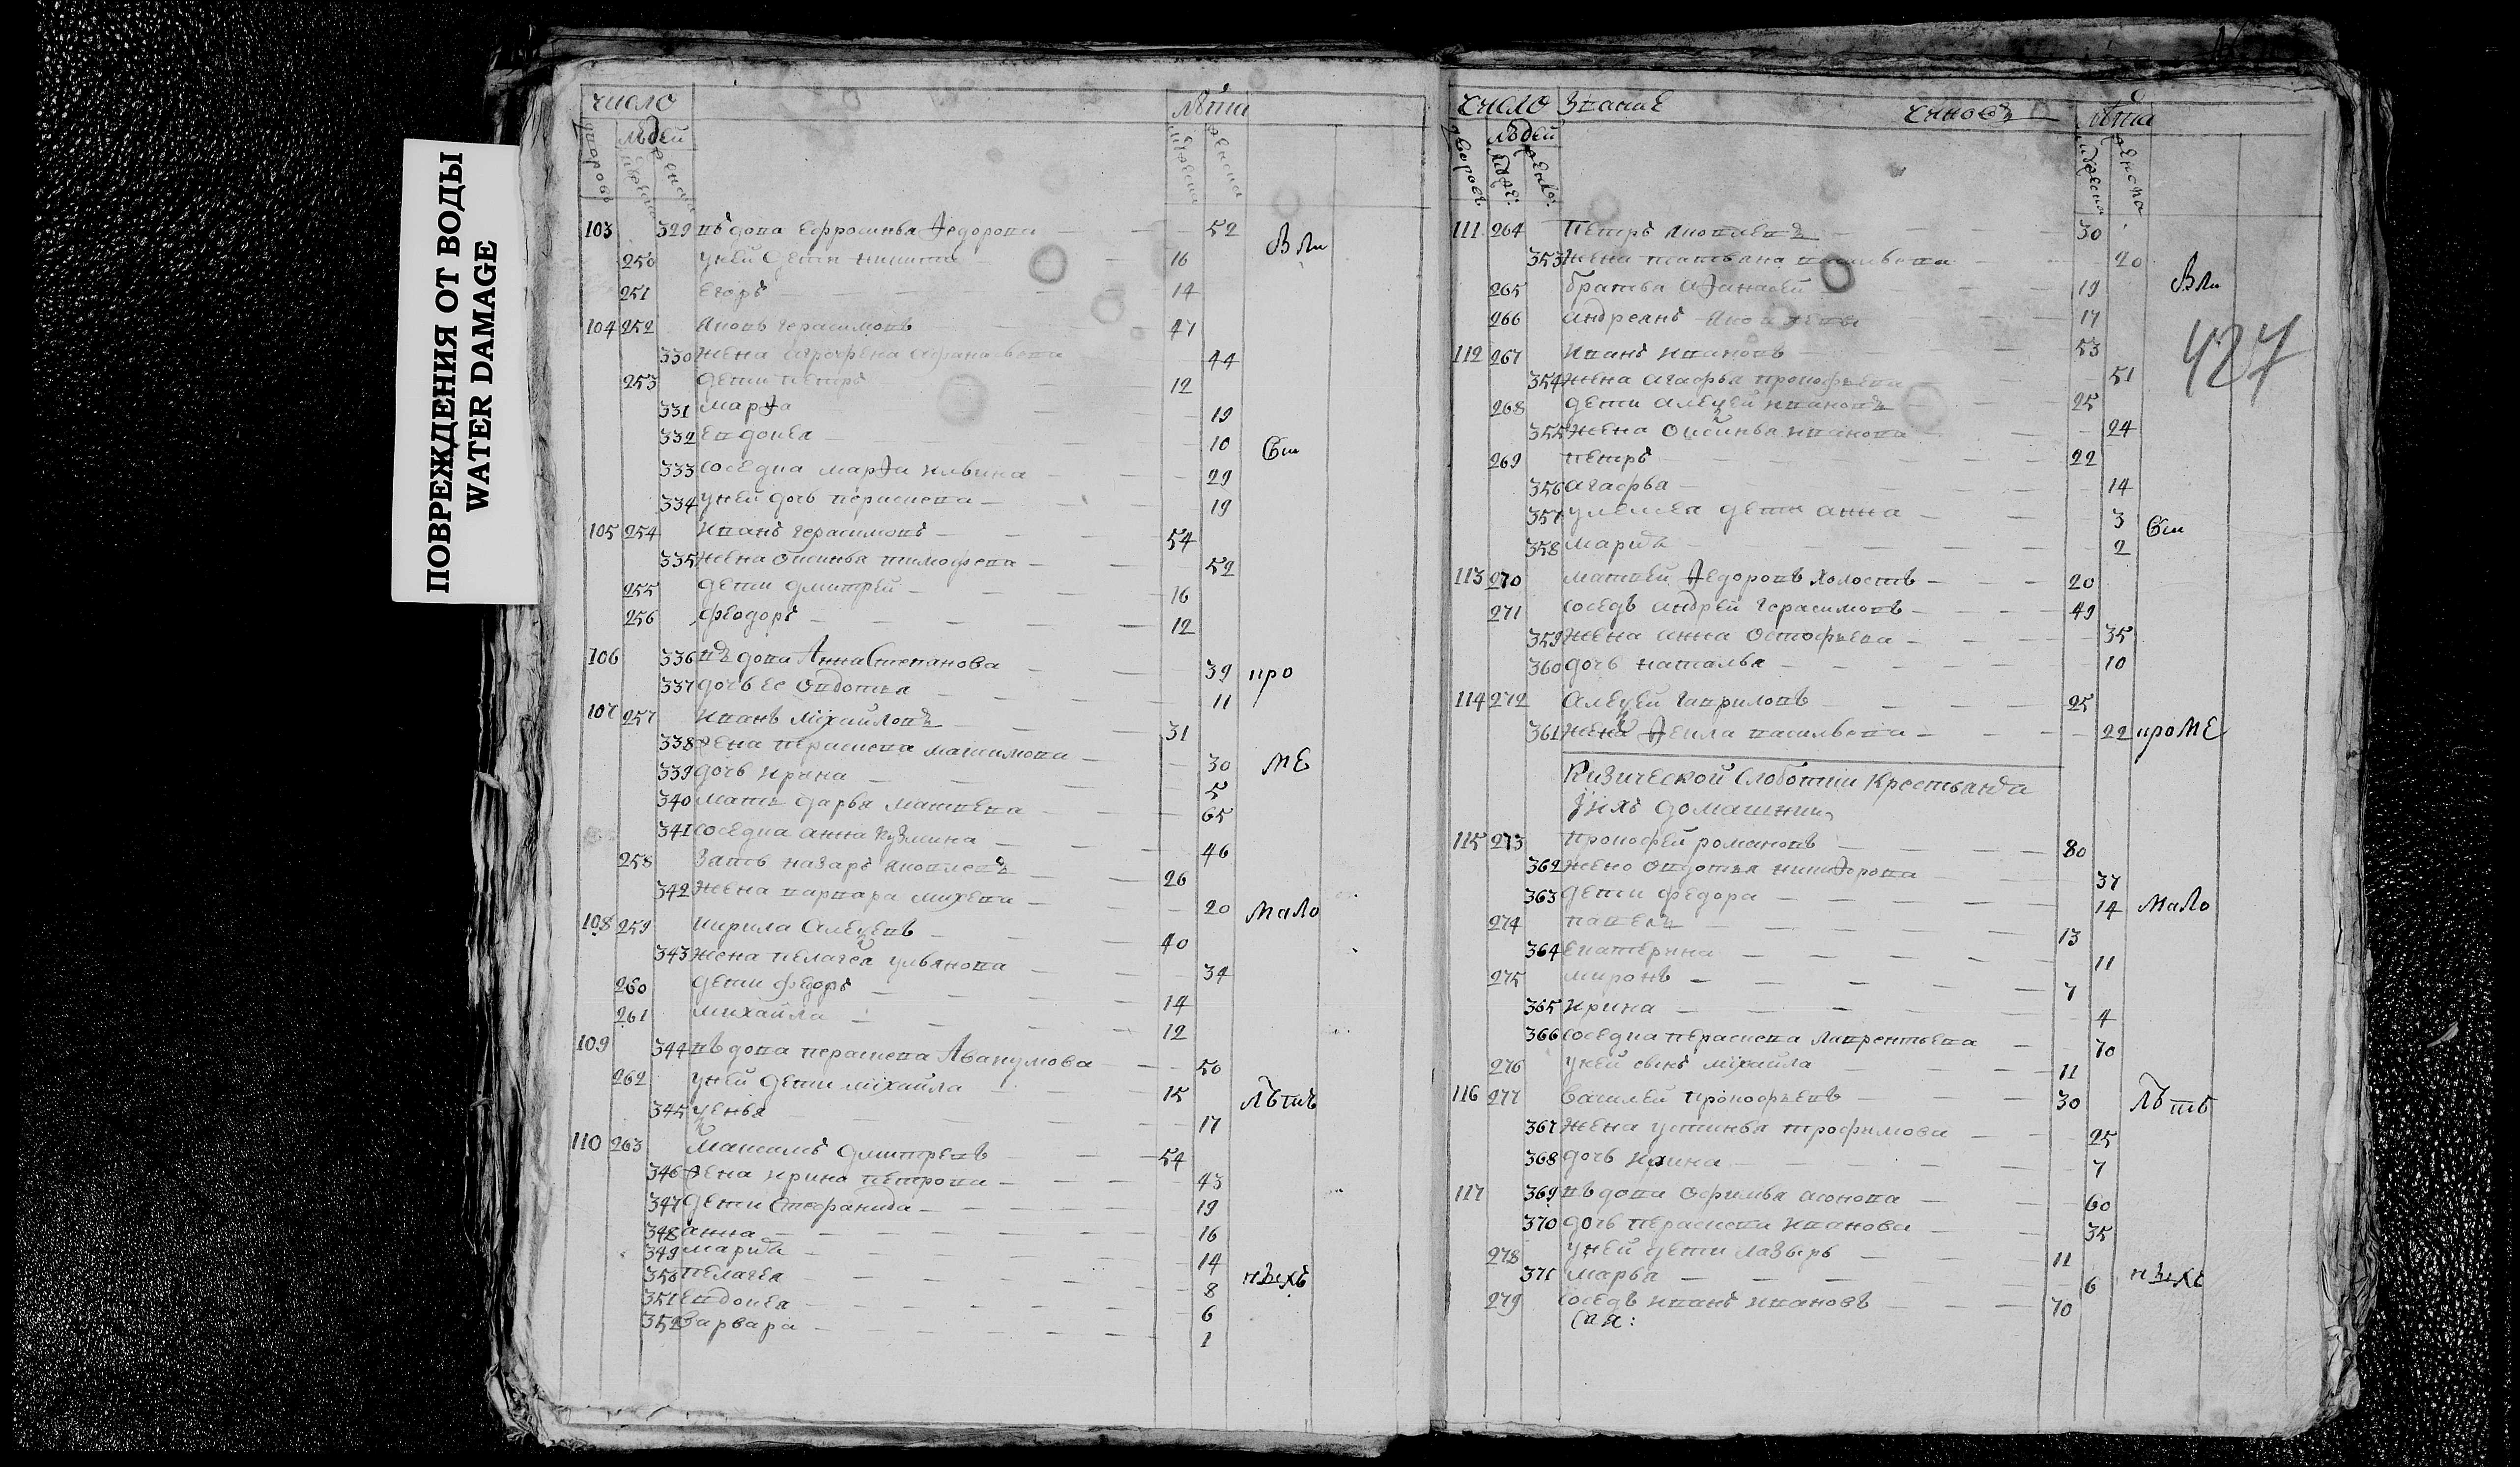 ПОВРЕЖДЕНИЯ ОТ ВОДЫ
WATER DAMAGE
число лѣта
дворовъ людей
103 329 вѣдова Ефросинья Ѳедорова 52
Вли
250 у ней дети никита 16
251 Егоръ 14
104 252 яковъ герасимовъ 47
330 жена 44
253 дети петръ 12
331 марѲа 19
332 Евдокея 10
Сти
333 соседка марѲа ильина 29
334 у ней дочь парасковa 19
105 254 иванъ герасимовъ 54
335 жена Оксинья тимофеева 52
255 дети дмитрей 16
256 феодоръ 12
106 336 вдова Анна Степанова 39 про
337 дочь ее Овдотья 11
107 257 иванъ михайловъ 31
338 жена парасковa максимова 30 МЕ
339 дочь ирина 5
340 мать дарья матвева 65
341 соседка анна кузмина 46
258 зять назаръ яковлевъ 26
342 жена варвара михева 20 МаЛо
108 259 кирила Алеѯевъ 40
343 жена пелагея ульянова 34
260 дети федоръ 14
261 михайла 12
109 344 вѣдова парасковa Авакумова 50
262 у ней дети михайла 15 Лѣтъ
345 ѯенья 17
110 263 максимъ дмитревъ 54
346 жена ирина петрова 43
347 дети Стефанида 19
348 анна 16
349 мариа 14
350 пелагея 8 нѣихъ
351 Евдокея 6
352 Варвара 1
число Званиe чиновъ лѣта
дворовъ людей
111 264 петръ яковлевъ 30
353 жена татьяна васильева 20
Вли
265 братья аѲанасей 19
266 андреянъ яковлевы 17
427
112 267 иванъ ивановъ 53
354 жена агафья прокофьева 51
268 дети алеѯей ивановъ 25
355 жена Оксинья иванова 24
269 петръ 22
356 агафья 14
357 у алеѯея дети анна 3
Сти
358 мариа 2
113 270 матвей Ѳедоровъ холостъ 20
271 соседъ андрей герасимовъ 49
359 жена анна Остафьева 35
360 дочь наталья 10
114 272 Алеѯей гавриловъ 25
361 жена Ѳекла васильева 22 про МЕ
Кизической слоботки Крестьяня
и ихъ домашнии
115 273 прокофей романовъ 80
362 жена Овдотья никиѲорова 37
363 дети федора 14 МаЛо
274 павелъ 13
364 Екатерина 11
275 миронъ 7
365 ирина 4
366 соседка парасковa лаврентьева 70
276 у ней сынъ михайла 11
116 277 Василей прокофьевъ 30 Лѣтъ
367 жена устинья трофимова 25
368 дочь ирина 7
117 369 вѣдова Офимья 60
370 дочь парасковa иванова 35
278 у ней дети лазырь 11
371 марья 6 нѣихъ
279 соседъ иванъ ивановъ 70